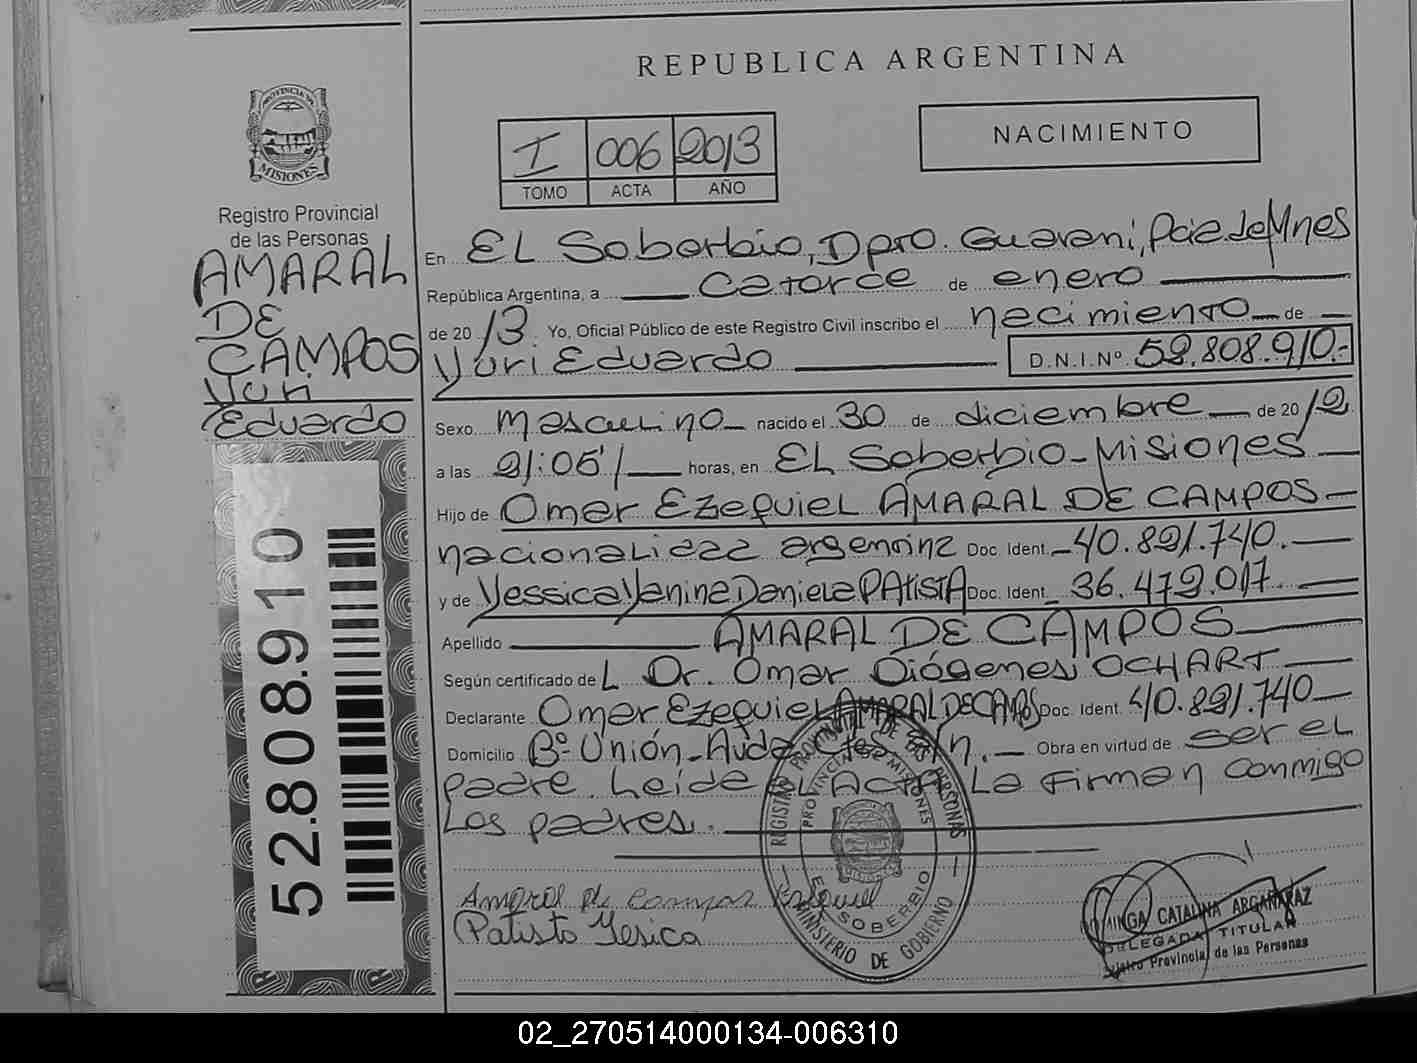 REPUBLICA ARGENTINA
NACIMIENTO
I 006 2013
TOMO ACTA AÑO
PROVINCIA DE
MISIONES
Registro Provincial
de las Personas
AMARAL
DE
CAMPOS
Yuri
Eduardo
52.808.910
En EL Soberbio, Dpto. Guarani, Pcia de Mnes
República Argentina, a catorce de enero
de 2013. Yo, Oficial Público de este Registro Civil inscribo el nacimiento de
Yuri Eduardo D.N.I.Nº 52.808.910.-
Sexo masculino nacido el 30 de diciembre de 2012
a las 21:05'/ horas, en EL Soberbio - Misiones
Hijo de Omar Ezequiel AMARAL DE CAMPOS
nacionalidad argentina Doc. Ident. 40.821.740.
y de Yessica Yanina Daniela PAtistA Doc. Ident. 36.472.017
Apellido AMARAL DE CAMPOS
Según certificado de L Dr. Omar Diógenes OCHART
Declarante Omar Ezequiel AMARAL DE CAMPOS Doc. Ident. 40.821.740
Domicilio Bº Unión - Avda S/n. Obra en virtud de ser el
padre. Leída el Acta La firman conmigo
Los padres.
REGISTRO PROVINCIAL DE LAS PERSONAS
PROVINCIA DE MISIONES
EL SOBERBIO
MINISTERIO DE GOBIERNO
Amaral de campos Esequiel
Patisto Yesica
CATALINA ARGAÑARAZ
DELEGADA TITULAR
Registro Provincial de las Personas
02_270514000134-006310